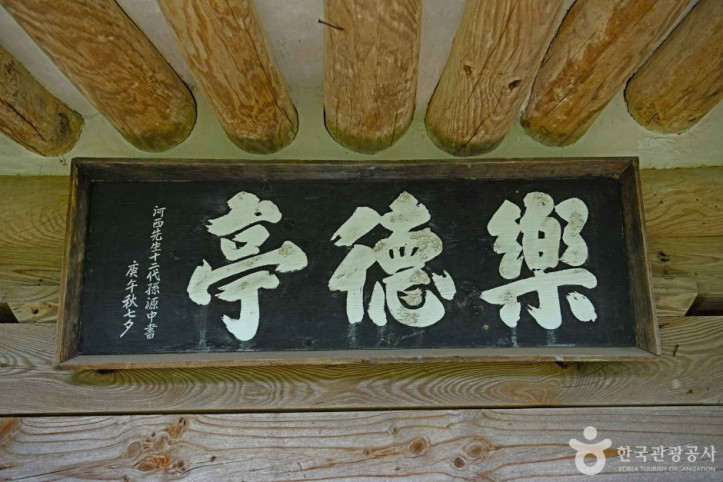 樂德亭
河西先生十二代孫源中書
庚午秋七夕
한국관광공사
KOREA TOURISM ORGANIZATION